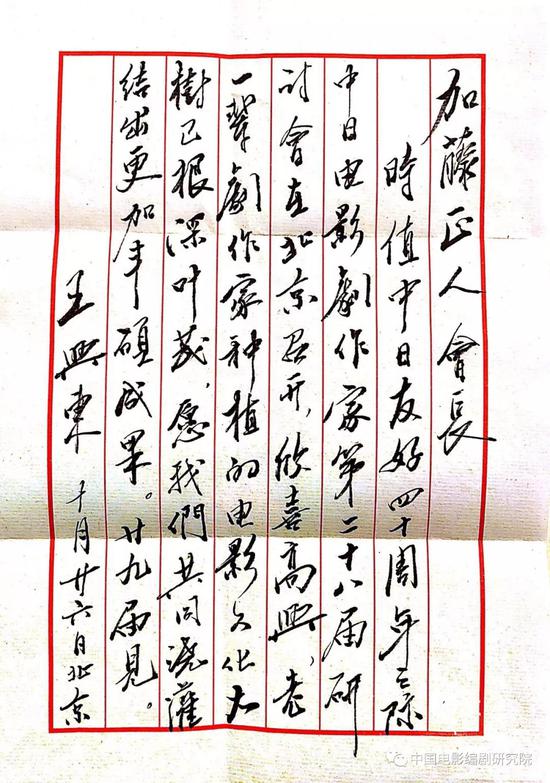 加藤正人會長
時值中日友好四十周年之际
中日电影劇作家第二十八届研
讨會在北京召开,欣喜高興,老
一輩劇作家种植的电影文化大
樹已根深叶茂,愿我們共同澆灌
结出更加丰硕成果。廿九届見。
王興東 十月廿六日北京
中国电影编剧研究院